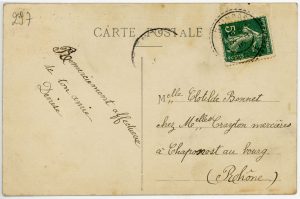 297
CARTE POSTALE
Remerciement affectueux
de ton amie
Denise
Melle Clotilde Bonnet
chez Melles Crayton mercières
à Chaponost au bourg
(Rhône)
5